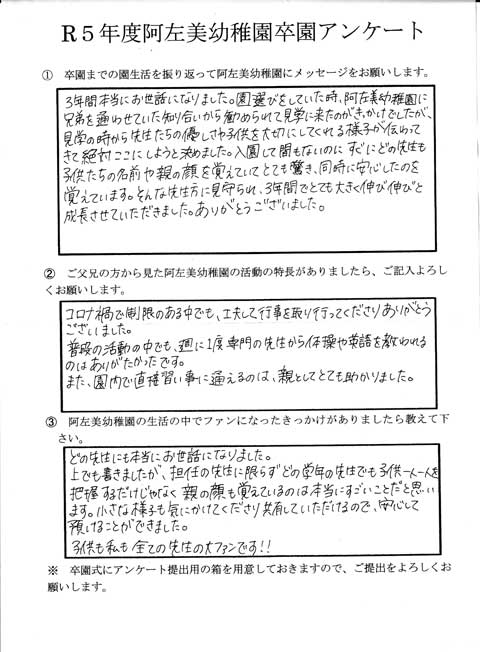 R5年度阿左美幼稚園卒園アンケート
① 卒園までの園生活を振り返って阿左美幼稚園にメッセージをお願いします。
3年間本当にお世話になりました。園選びをしていた時、阿左美幼稚園に
兄弟を通わせていた知り合いから勧められて見学に来たのがきっかけでしたが、
見学の時から先生たちの優しさや子供を大切にしてくれる様子が伝わって
きて絶対ここにしようと決めました。入園して間もないのにすぐにどの先生も
子供たちの名前や親の顔を覚えていてとても驚き、同時に安心したのを
覚えています。そんな先生方に見守られ、3年間でとても大きく伸び伸びと
成長させていただきました。ありがとうございました。
② ご父兄の方から見た阿左美幼稚園の活動の特長がありましたら、ご記入よろし
くお願いします。
コロナ禍で制限のある中でも、工夫して行事を取り行ってくださりありがとう
ございました。
普段の活動の中でも、週に1度専門の先生から体操や英語を教われる
のはありがたかったです。
また、園内で直接習い事に通えるのは、親としてとても助かりました。
③ 阿左美幼稚園の生活の中でファンになったきっかけがありましたら教えて下
さい。
どの先生にも本当にお世話になりました。
上でも書きましたが、担任の先生に限らずどの学年の先生でも子供一人一人を
把握するだけじゃなく親の顔も覚えているのは本当にすごいことだと思い
ます。小さな様子も気にかけてくださり共有していただけるので、安心して
預けることができました。
子供も私も全ての先生の大ファンです!!
※ 卒園式にアンケート提出用の箱を用意しておきますので、ご提出をよろしくお
願いします。